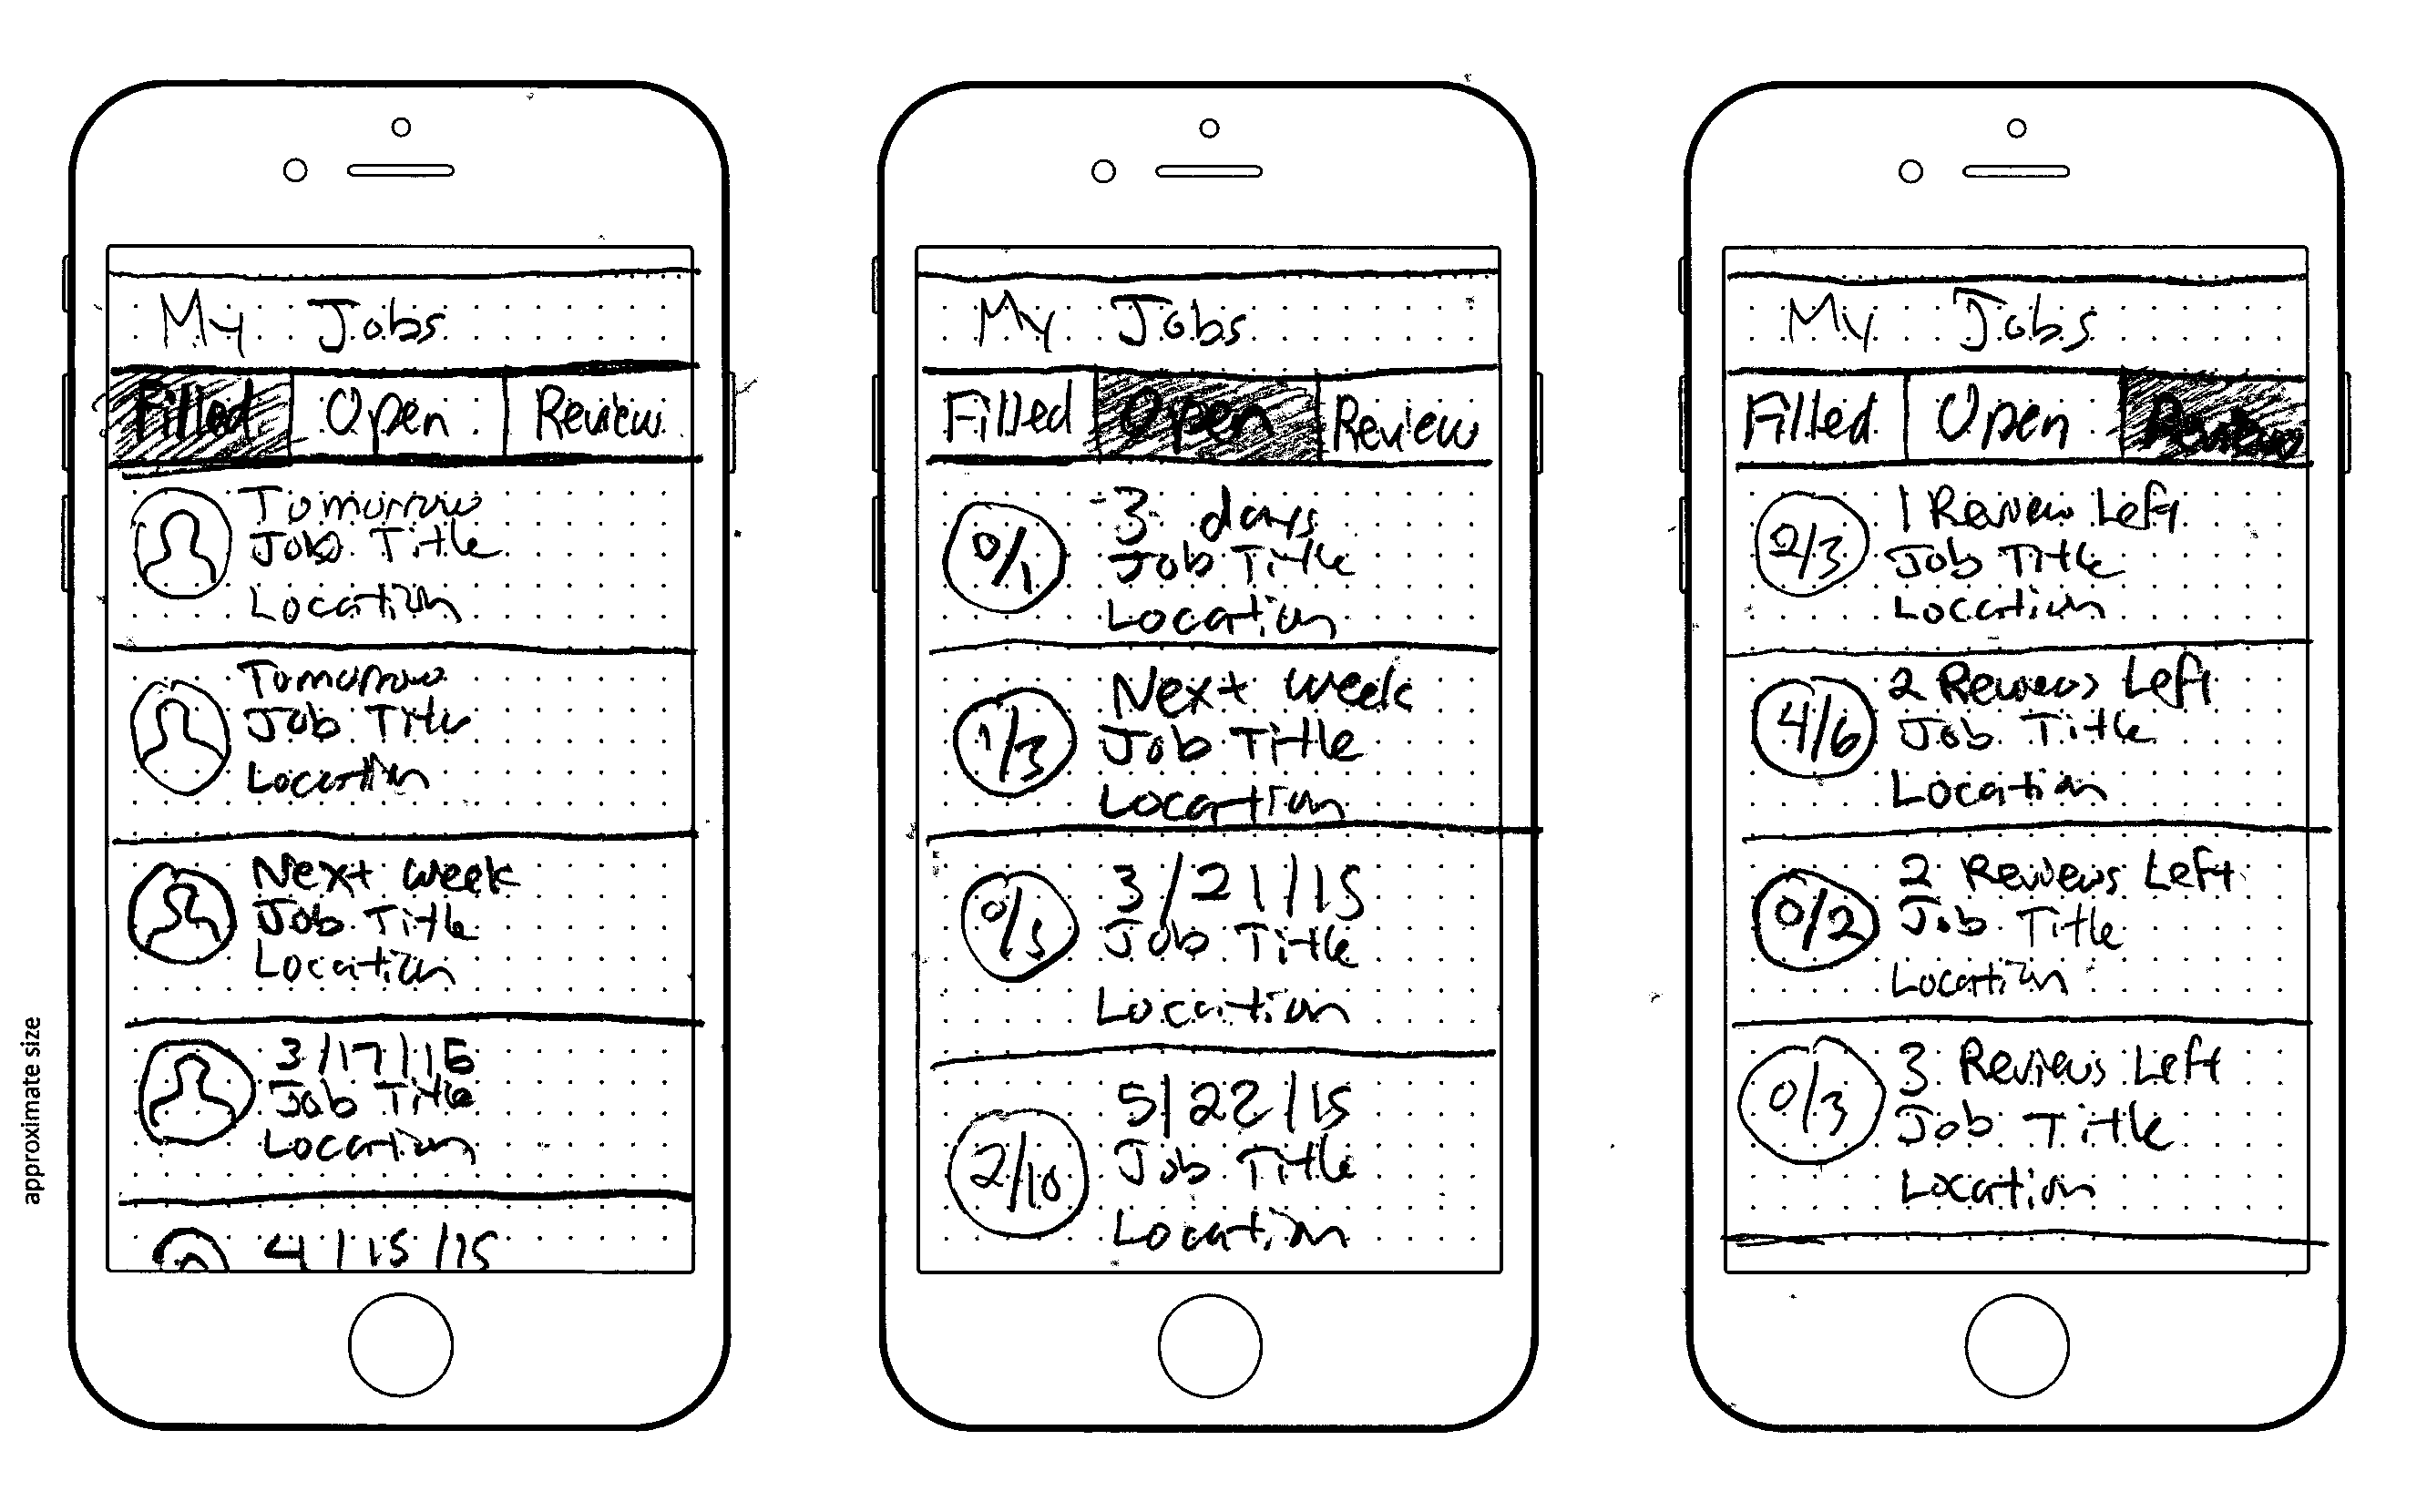 My Jobs
Filled Open Review
Tomorrow
Job Title
Location
Tomorrow
Job Title
Location
Next week
Job Title
Location
3/17/15
Job Title
Location
4/15/15
My Jobs
Filled Open Review
0/1
3 days
Job Title
Location
1/3
Next week
Job Title
Location
3/21/15
Job Title
Location
2/10
5/22/15
Job Title
Location
My Jobs
Filled Open Review
2/3
1 Review Left
Job Title
Location
4/6
2 Reviews Left
Job Title
Location
0/2
2 Reviews Left
Job Title
Location
0/3
3 Reviews Left
Job Title
Location
approximate size